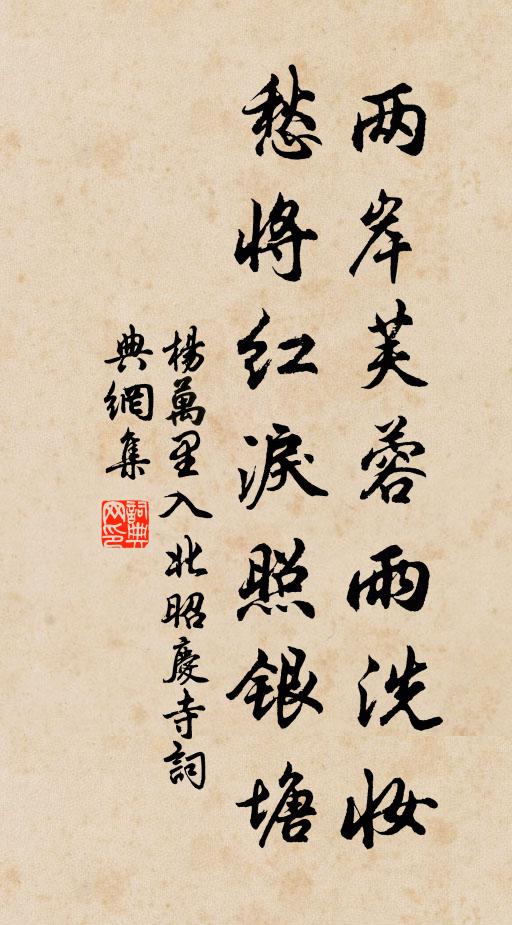 两岸芙蓉雨洗妆
愁将红淚照银塘
楊萬里入北昭慶寺詞
典網集
詞典
网印